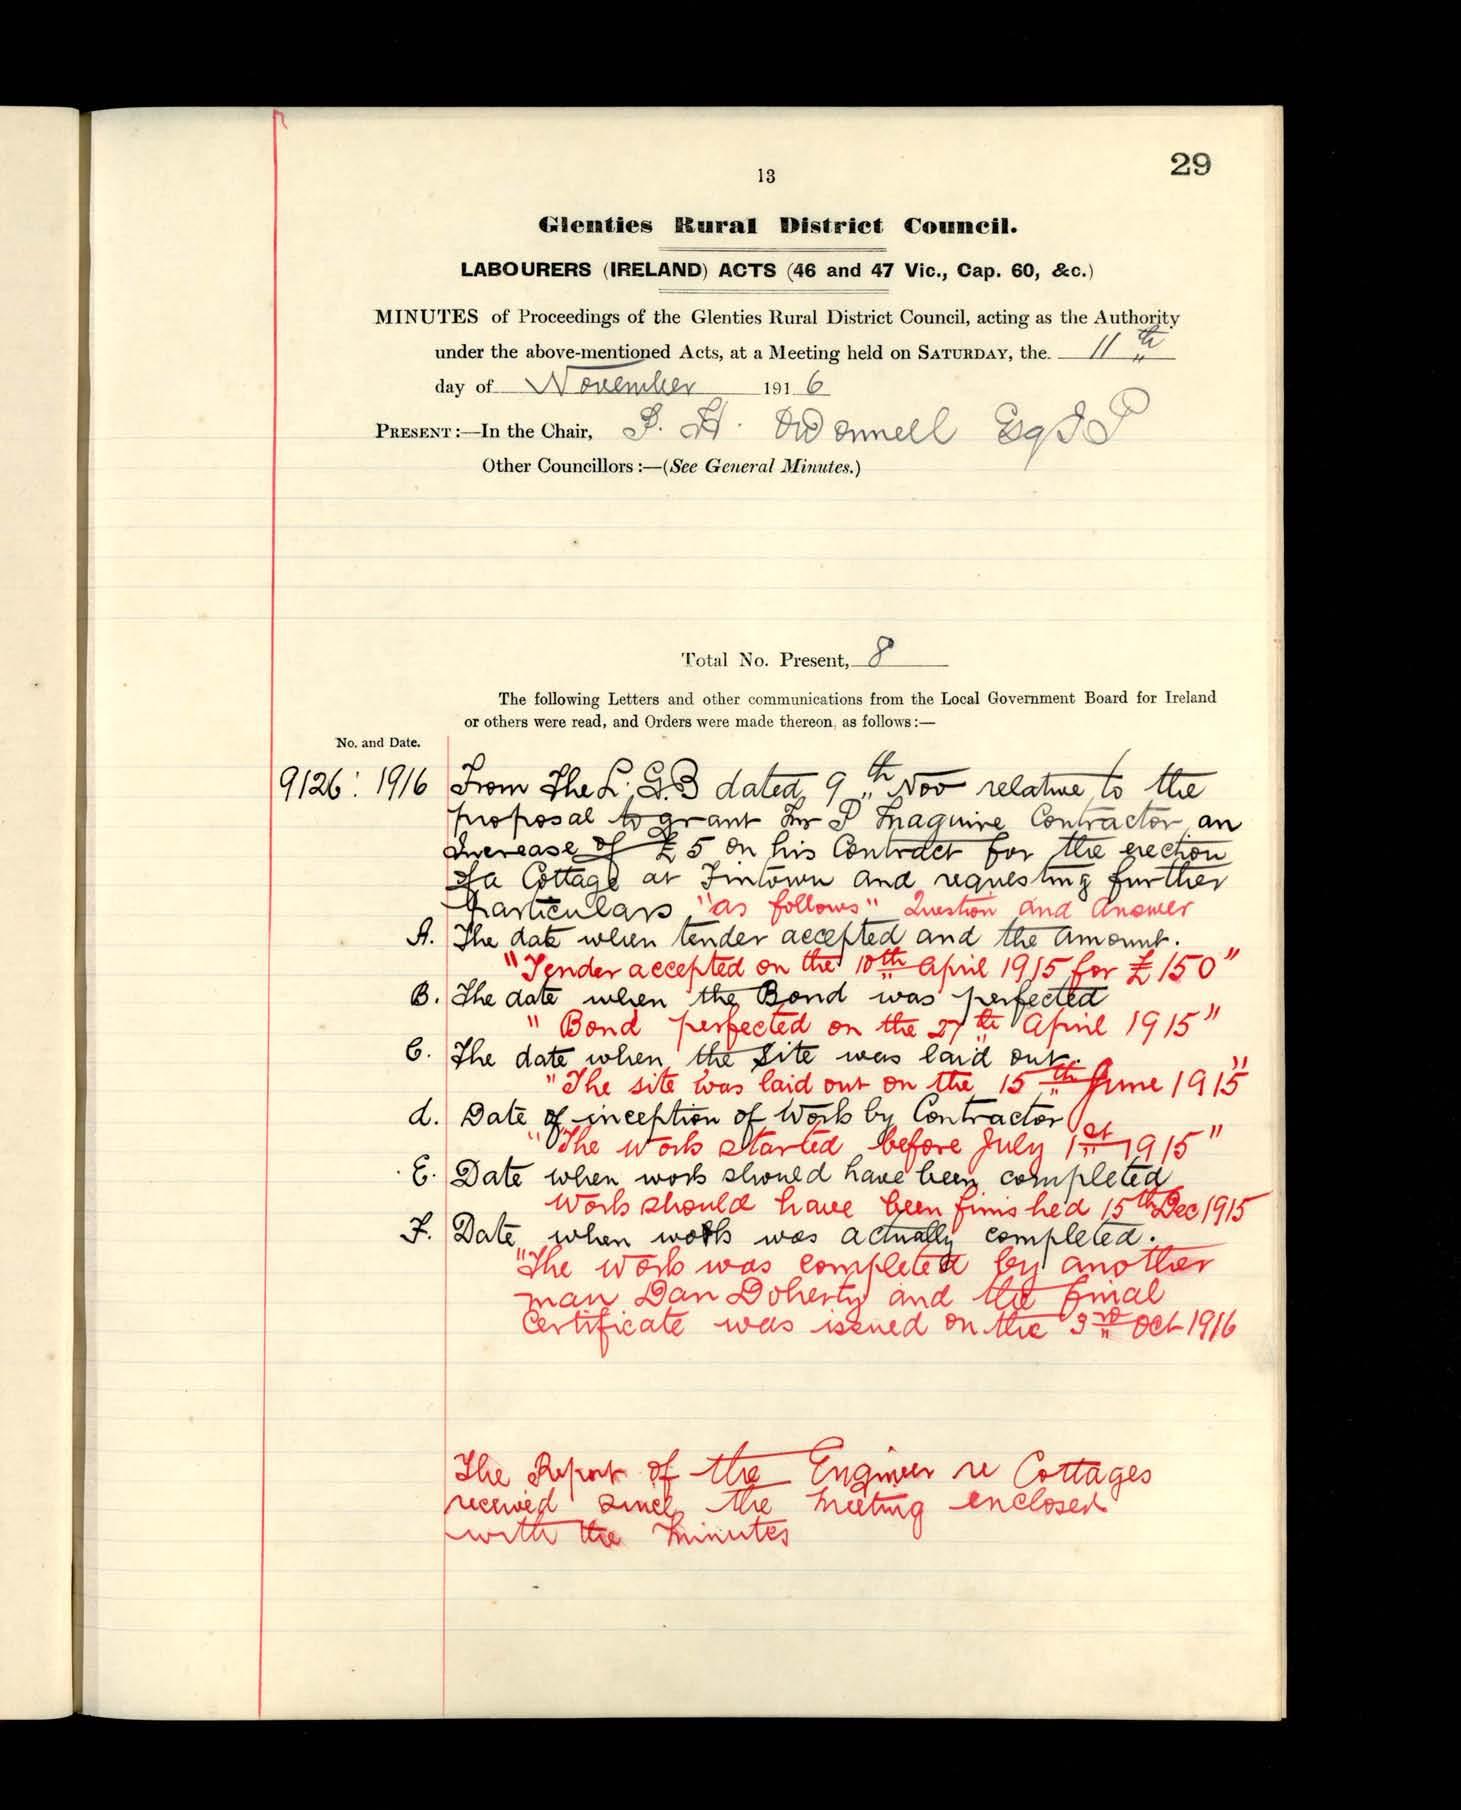 29
13
Glenties Rural District Council.
LABOURERS (IRELAND) ACTS (46 and 47 Vic., Cap. 60, &c.)
MINUTES of Proceedings of the Glenties Rural District Council, acting as the Authority
under the above-mentioned Acts, at a Meeting held on SATURDAY, the 11th
day of November 1916
PRESENT:—In the Chair, H. O'Donnell Esq J P
Other Councillors:—(See General Minutes.)
Total No. Present, 8
The following Letters and other communications from the Local Government Board for Ireland
or others were read, and Orders were made thereon, as follows:—
No. and Date.
9126: 1916 From The L. G. B dated 9th Nov relative to the
proposal to grant Mr P Maguire Contractor an
increase of £5 on his Contract for the erection
of a Cottage at Fintown and requesting further
particulars "as follows" Question and Answer
A. The date when tender accepted and the amount.
"Tender accepted on the 10th April 1915 for £150"
B. The date when the Bond was perfected
"Bond perfected on the 27th April 1915"
C. The date when the site was laid out.
"The site was laid out on the 15th June 1915"
d. Date of inception of Work by Contractor
"The work started before July 1st 1915"
E. Date when work should have been completed
Work should have been finished 15th Dec 1915
F. Date when work was actually completed.
"The work was completed by another
man Dan Doherty and the final
Certificate was issued on the 3rd Oct 1916
The Report of the Engineer re Cottages
received since the meeting enclosed
with the minutes